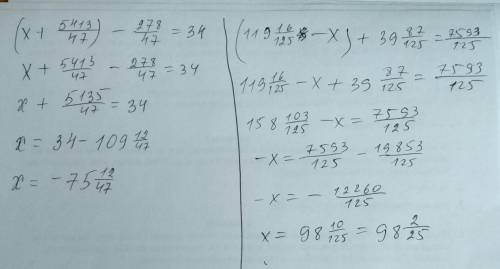 (x + 5413/47) − 278/47 = 34
x + 5413/47 − 278/47 = 34
x + 5135/47 = 34
x = 34 − 109 12/47
x = −75 12/47
(119 16/125 − x) + 39 87/125 = 7593/125
119 16/125 − x + 39 87/125 = 7593/125
158 103/125 − x = 7593/125
−x = 7593/125 − 19853/125
−x = − 12260/125
x = 98 10/125 = 98 2/25